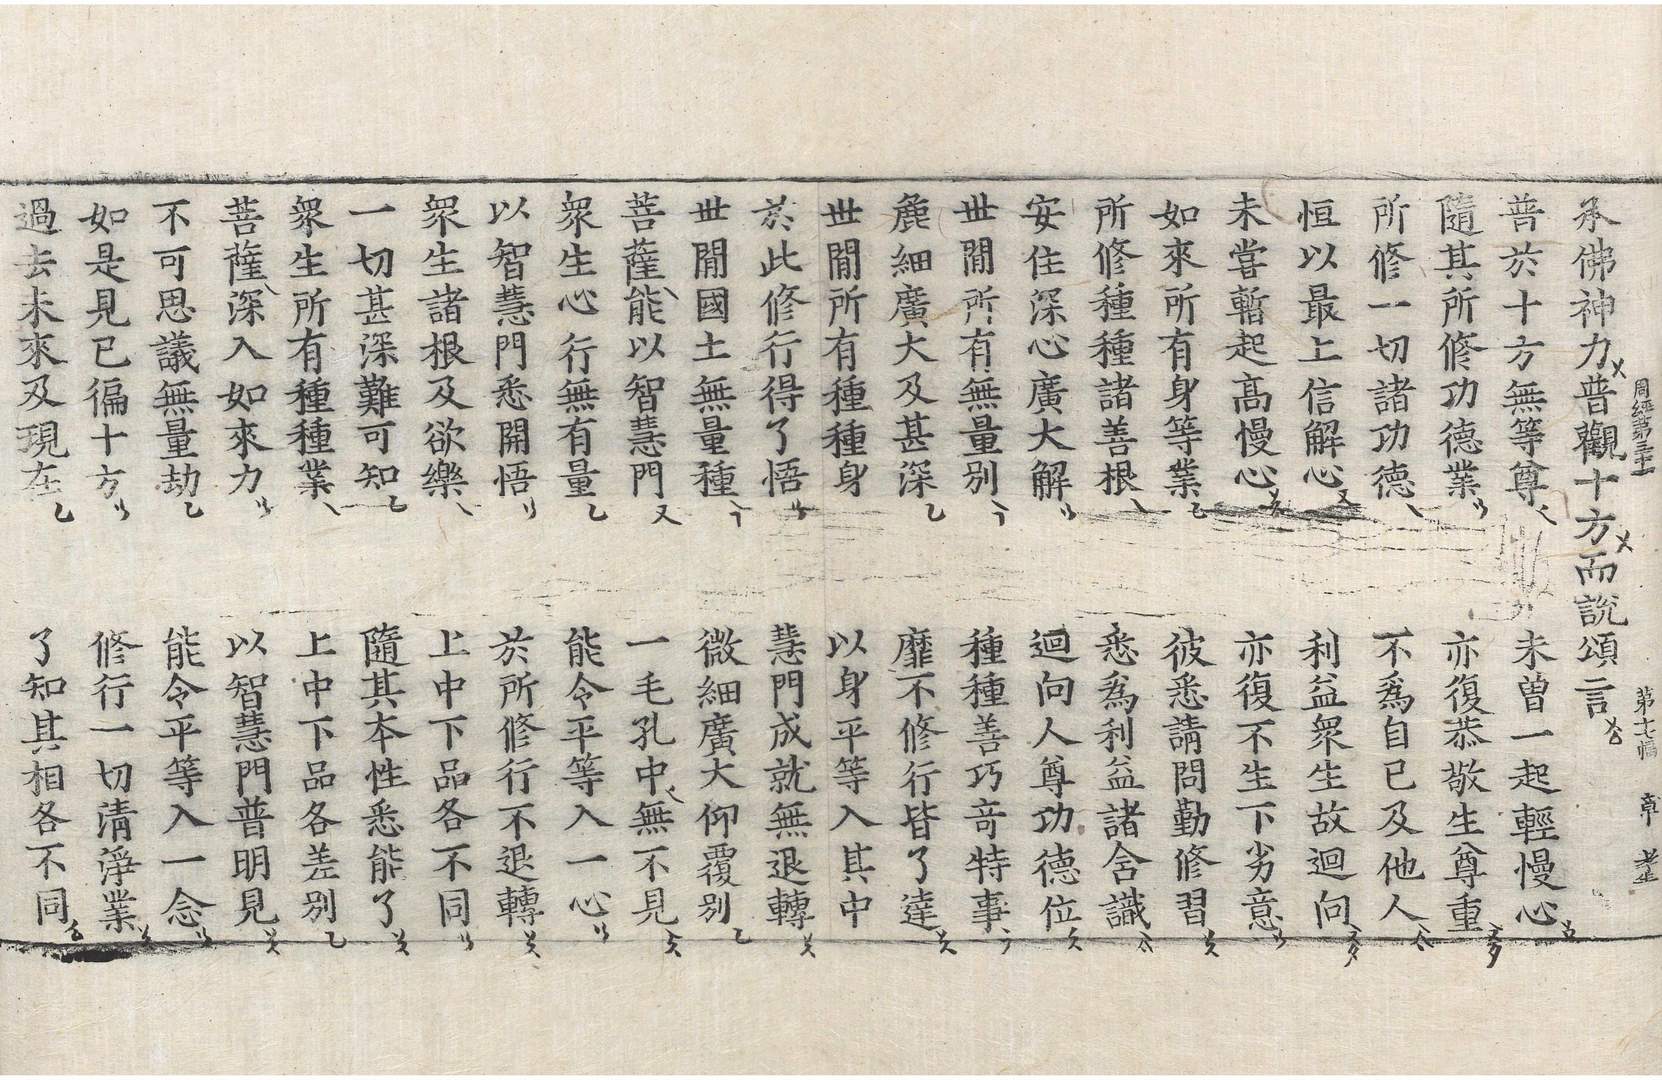 承佛神力普觀十方而說頌言
周經第三十一 第七幅
普於十方無等尊 未曾一起輕慢心
隨其所修功德業 亦復恭敬生尊重
所修一切諸功德 不爲自已及他人
恒以最上信解心 利益衆生故迴向
未嘗暫起高慢心 亦復不生下劣意
如來所有身等業 彼悉請問勤修習
所修種種諸善根 悉爲利益諸含識
安住深心廣大解 迴向人尊功德位
世閒所有無量別 種種善巧奇特事
麁細廣大及甚深 靡不修行皆了達
世閒所有種種身 以身平等入其中
於此修行得了悟 慧門成就無退轉
世閒國土無量種 微細廣大仰覆別
菩薩能以智慧門 一毛孔中無不見
衆生心行無有量 能令平等入一心
以智慧門悉開悟 於所修行不退轉
衆生諸根及欲樂 上中下品各不同
一切甚深難可知 隨其本性悉能了
衆生所有種種業 上中下品各差別
菩薩深入如來力 以智慧門普明見
不可思議無量劫 能令平等入一念
如是見已徧十方 修行一切清淨業
過去未來及現在 了知其相各不同